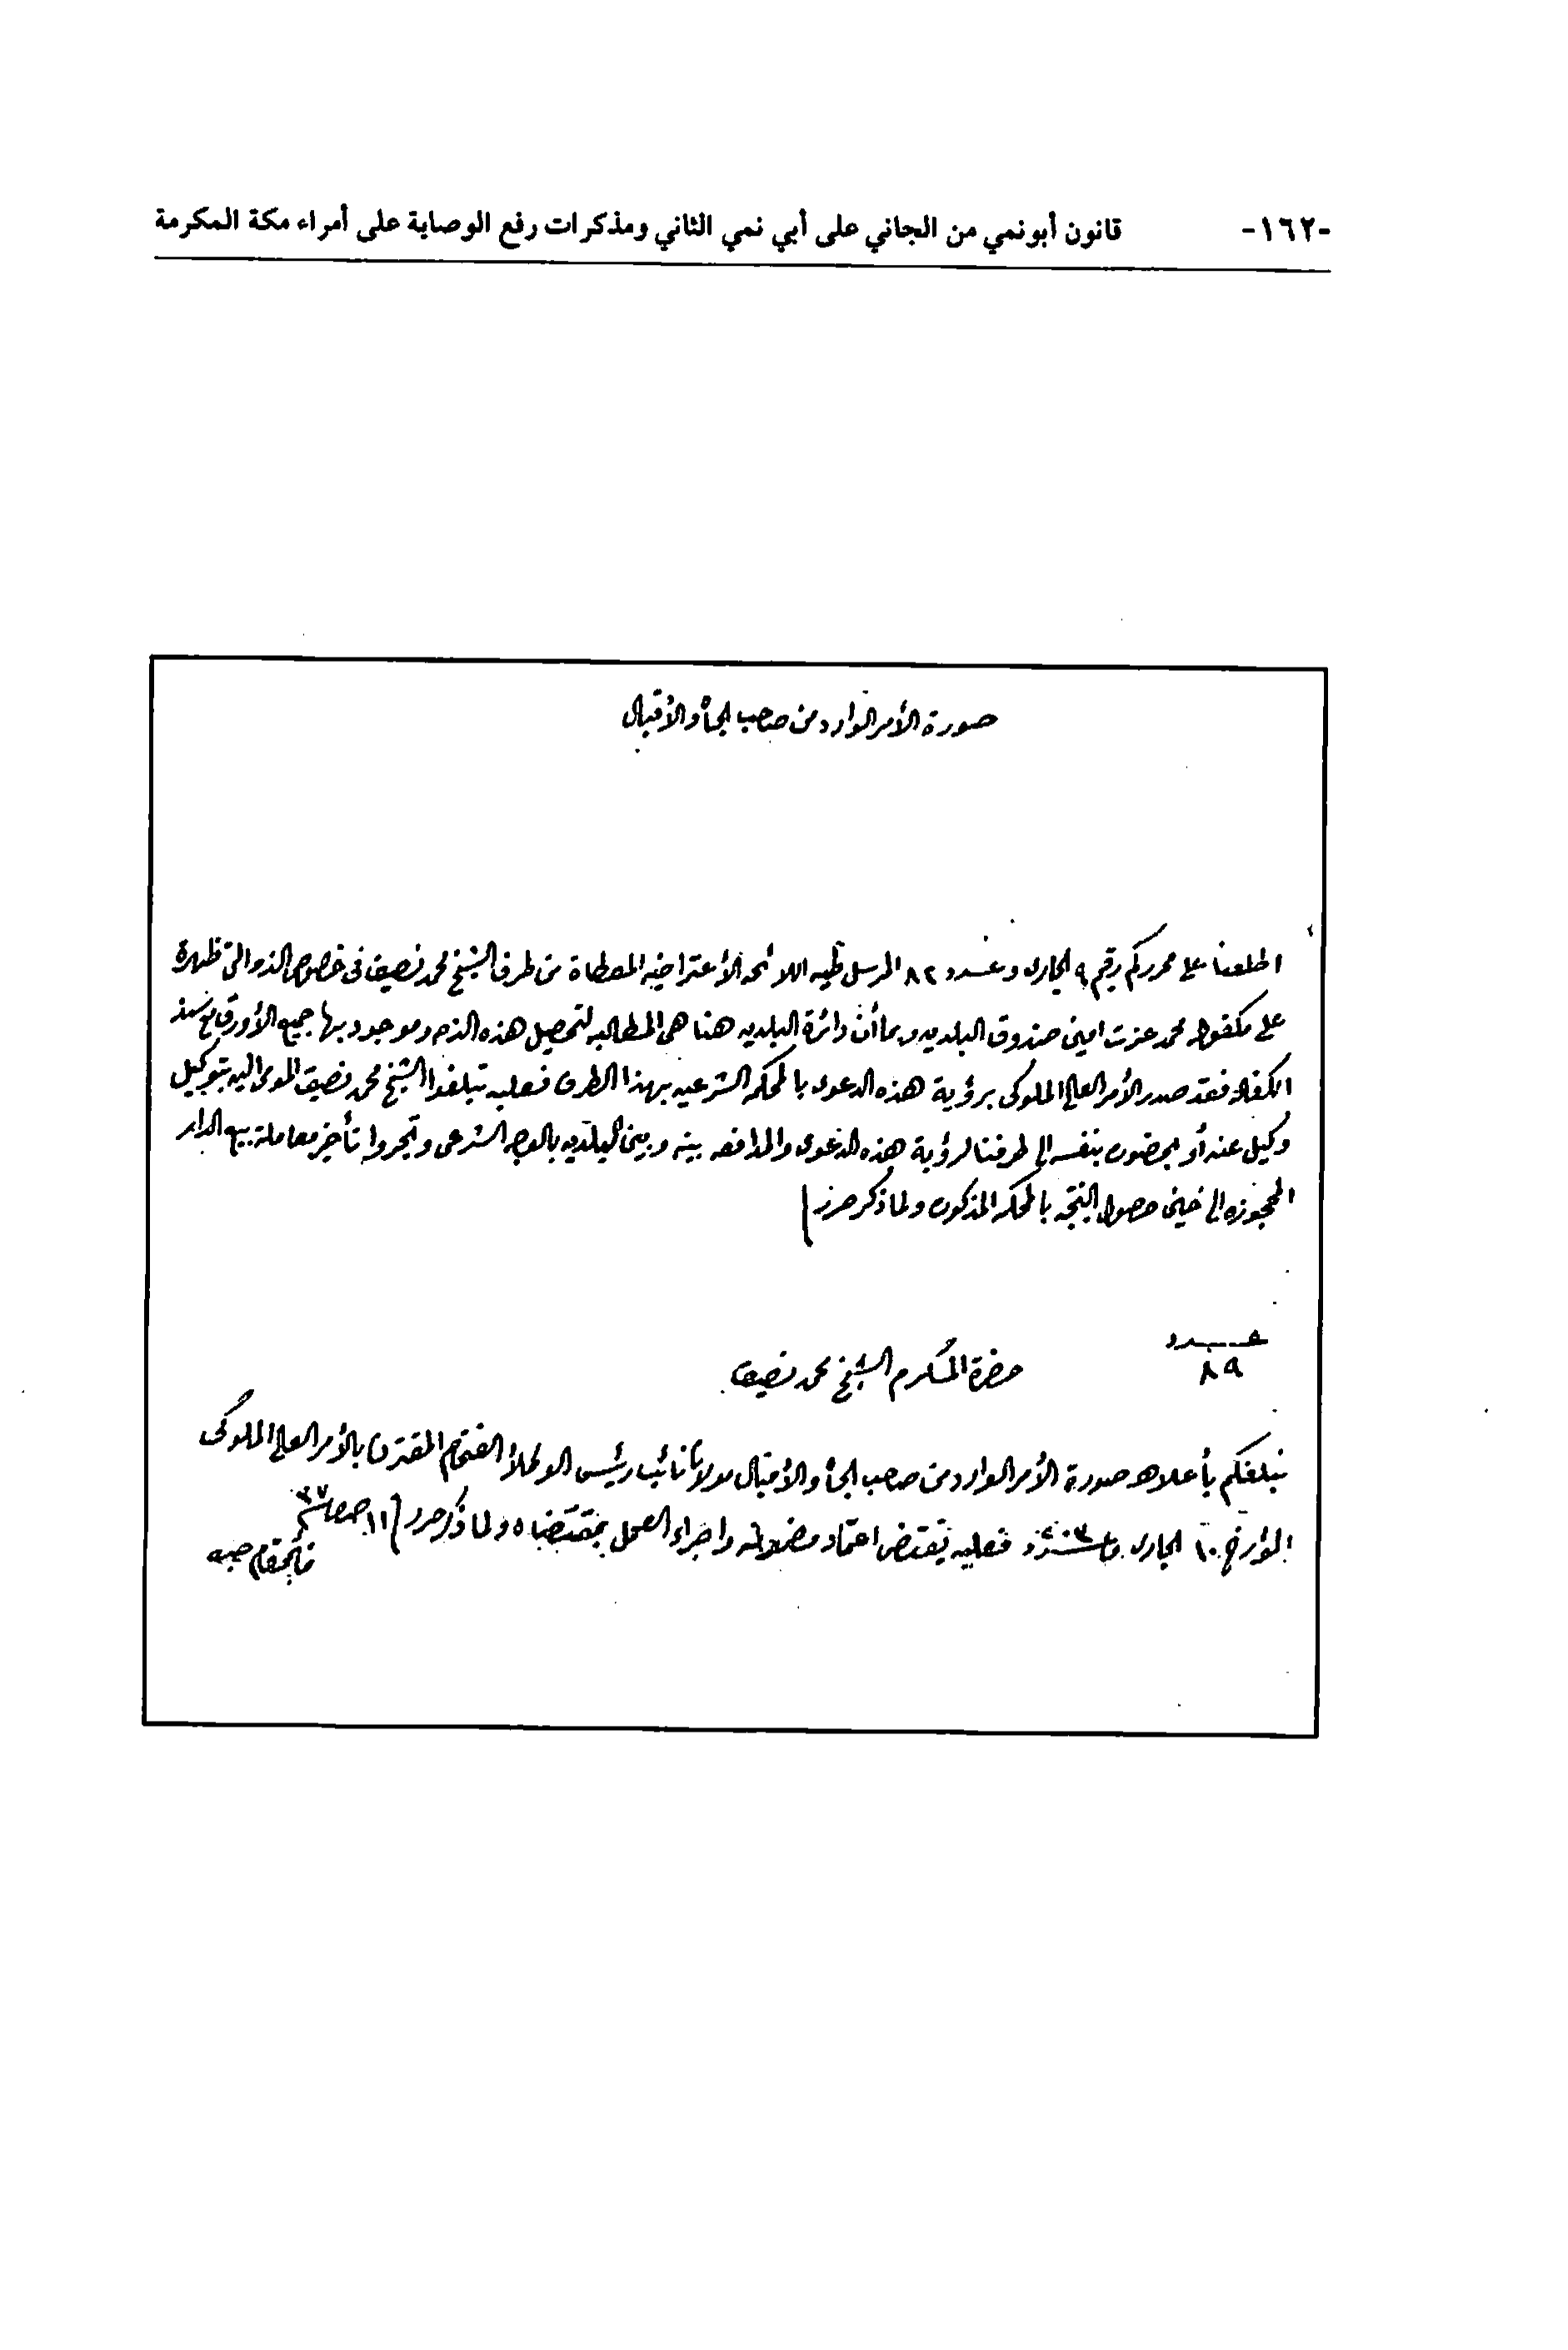 -١٦٢- قانون أبونمي من الجاني على أبي نمي الثاني ومذكرات رفع الوصاية على أمراء مكة المكرمة
صورة الأمر الوارد من صاحب الجاه والأقبال
اطلعنا على محرركم رقيم ٩ الجارى وعدد ٨٢ المرسل طيه اللائحه الأعتراضيه المعطاة من طرف الشيخ محمد نصيف فى خصوص الذم التى ظهرة
على مكفوله محمد عزت امين صندوق البلديه وبما أن دائرة البلديه هنا هى المطالبه لتحصيل هذه الذم وموجود بها جميع الأورق مع سند
الكفاله فقد صدر الأمر العالى الملوكى برؤية هذه الدعوى بالمحكمه الشرعيه بهذا الطرف فعليه تبلغوا الشيخ محمد نصيف المومى اليه بتوكيل
وكيل عنه أو يحضر بنفسه الى طرفنا لرؤية هذه الدعوى والمدافعه بينه وبين البلديه بالوجه الشرعى وتجروا تأخير معاملة بيع الدار
المحجوزه الى حين حصول النتيجه بالمحكمه المذكوره ولما ذكر حرر
عدد
٨٩
حضرة المكرم الشيخ محمد نصيف
نبلغكم بأعلاه صورة الأمر الوارد من صاحب الجاه والأقبال مولانا نائب رئيس الوكلاء الفخام المقترن بالأمر العالى الملوكى
المؤرخ ١٠ الجارى فعليه يقتضى اعتماد مضمونه واجراء العمل بمقتضاه ولما ذكر حرر ١١ ٣٧
قائمقام جده